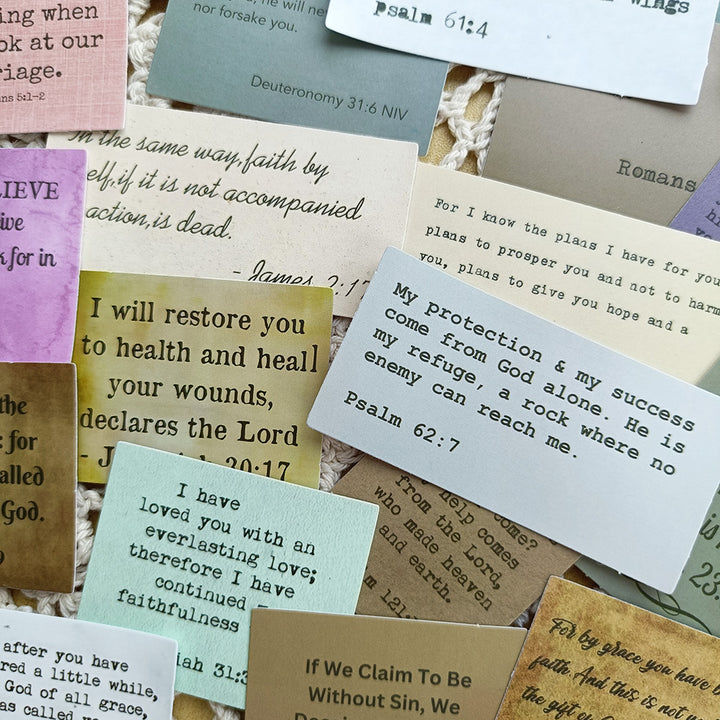 ing when
ok at our
riage.
ns 5:1-2
nor forsake you.
Deuteronomy 31:6 NIV
wings
psalm 61:4
Romans
In the same way, faith by
elf, if it is not accompanied
action, is dead.
- James 2:17
LIEVE
ive
k for in
For I know the plans I have for you
plans to prosper you and not to harm
you, plans to give you hope and a
I will restore you
to health and heal
your wounds,
declares the Lord
30:17
My protection & my success
come from God alone. He is
my refuge, a rock where no
enemy can reach me.
Psalm 62:7
the
; for
alled
God.
9
I have
loved you with an
everlasting love;
therefore I have
continued
faithfulness
iah 31:3
help come?
from the Lord,
who made heaven
and earth.
m 121:
is
23:
after you have
red a little while,
God of all grace,
as called
If We Claim To Be
Without Sin, We
For by grace you have b
faith. And this is not y
the gift of G